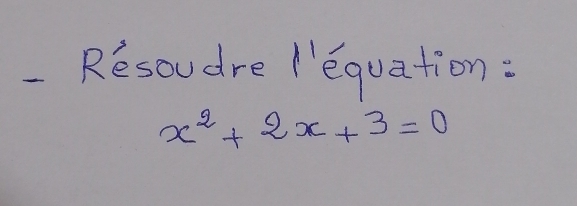 - Résoudre l'équation :
x² + 2x + 3 = 0